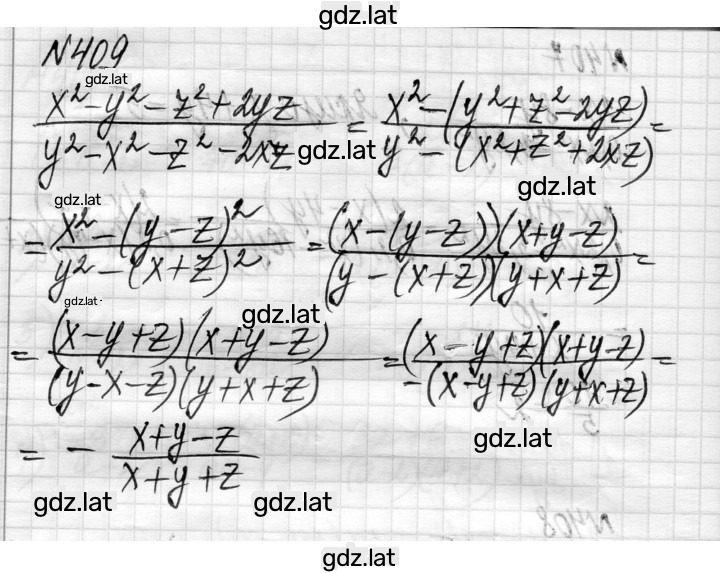 gdz.lat
N409
gdz.lat
(x² - y² - z² + 2yz)/(y² - x² - z² - 2xz) = (x² - (y² + z² - 2yz))/(y² - (x² + z² + 2xz)) =
gdz.lat
gdz.lat
gdz.lat
= (x² - (y - z)²)/(y² - (x + z)²) = ((x - (y - z))(x + y - z))/((y - (x + z))(y + x + z)) =
gdz.lat
gdz.lat
= ((x - y + z)(x + y - z))/((y - x - z)(y + x + z)) = ((x - y + z)(x + y - z))/(-(x - y + z)(y + x + z)) =
gdz.lat
= - (x + y - z)/(x + y + z)
gdz.lat gdz.lat
gdz.lat